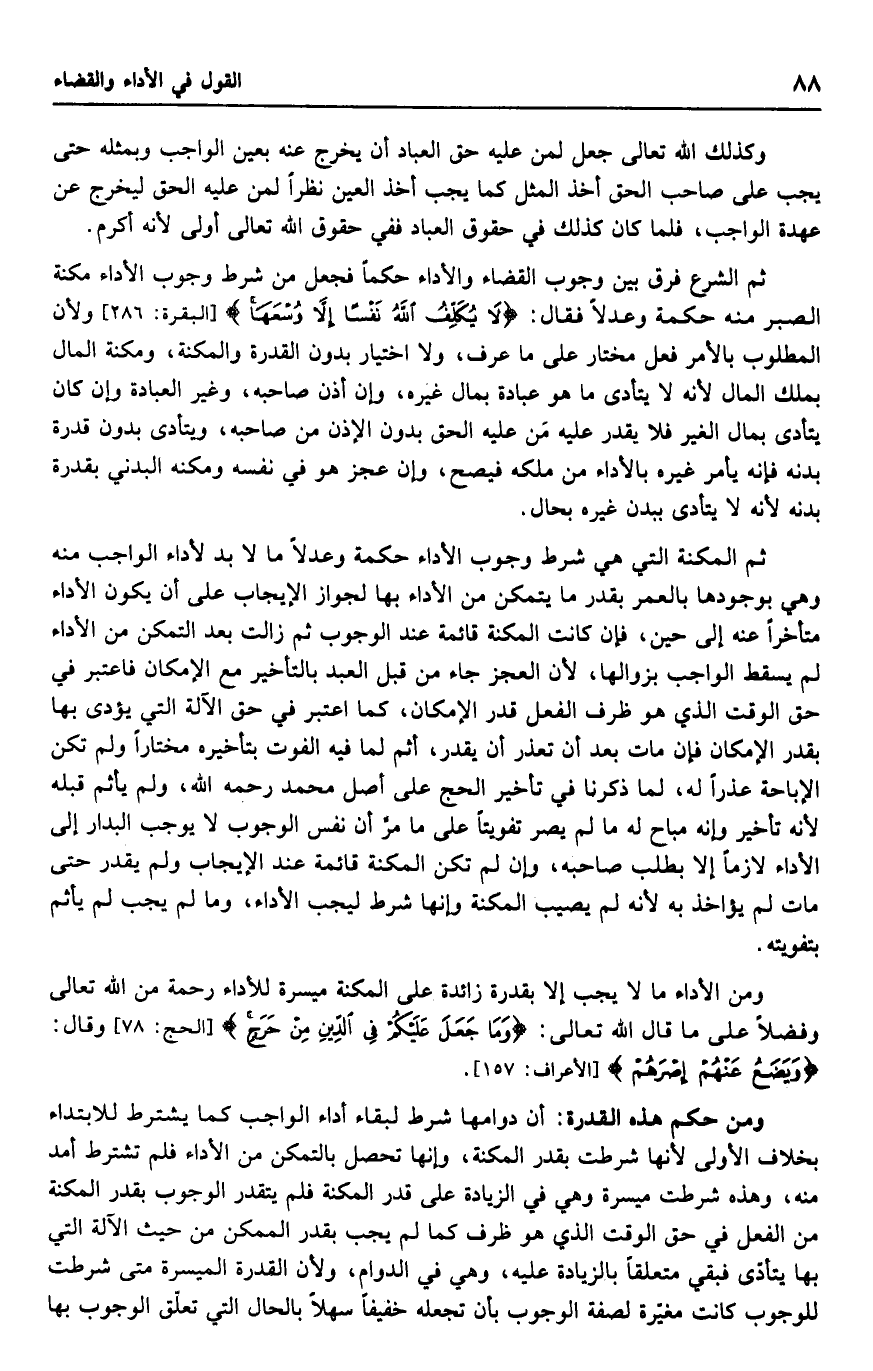 ٨٨ القول في الأداء والقضاء
وكذلك الله تعالى جعل لمن عليه حق العباد أن يخرج عنه بعين الواجب وبمثله حتى
يجب على صاحب الحق أخذ المثل كما يجب أخذ العين نظراً لمن عليه الحق ليخرج عن
عهدة الواجب، فلما كان كذلك في حقوق العباد ففي حقوق الله تعالى أولى لأنه أكرم.
ثم الشرع فرق بين وجوب القضاء والأداء حكماً فجعل من شرط وجوب الأداء مكنة
الصبر منه حكمة وعدلاً فقال: ﴿لَا يُكَلِّفُ ٱللَّهُ نَفْسًا إِلَّا وُسْعَهَاۚ﴾ [البقرة: ٢٨٦] ولأن
المطلوب بالأمر فعل مختار على ما عرف، ولا اختيار بدون القدرة والمكنة، ومكنة المال
بملك المال لأنه لا يتأدى ما هو عبادة بمال غيره، وإن أذن صاحبه، وغير العبادة وإن كان
يتأدى بمال الغير فلا يقدر عليه مَن عليه الحق بدون الإذن من صاحبه، ويتأدى بدون قدرة
بدنه فإنه يأمر غيره بالأداء من ملكه فيصح، وإن عجز هو في نفسه ومكنه البدني بقدرة
بدنه لأنه لا يتأدى ببدن غيره بحال.
ثم المكنة التي هي شرط وجوب الأداء حكمة وعدلاً ما لا بد لأداء الواجب منه
وهي بوجودها بالعمر بقدر ما يتمكن من الأداء بها لجواز الإيجاب على أن يكون الأداء
متأخراً عنه إلى حين، فإن كانت المكنة قائمة عند الوجوب ثم زالت بعد التمكن من الأداء
لم يسقط الواجب بزوالها، لأن العجز جاء من قبل العبد بالتأخير مع الإمكان فاعتبر في
حق الوقت الذي هو ظرف الفعل قدر الإمكان، كما اعتبر في حق الآلة التي يؤدى بها
بقدر الإمكان فإن مات بعد أن تعذر أن يقدر، أثم لما فيه الفوت بتأخيره مختاراً ولم تكن
الإباحة عذراً له، لما ذكرنا في تأخير الحج على أصل محمد رحمه الله، ولم يأثم قبله
لأنه تأخير وإنه مباح له ما لم يصر تفويتاً على ما مرَّ أن نفس الوجوب لا يوجب البدار إلى
الأداء لازماً إلا بطلب صاحبه، وإن لم تكن المكنة قائمة عند الإيجاب ولم يقدر حتى
مات لم يؤاخذ به لأنه لم يصيب المكنة وإنها شرط ليجب الأداء، وما لم يجب لم يأثم
بتفويته.
ومن الأداء ما لا يجب إلا بقدرة زائدة على المكنة ميسرة للأداء رحمة من الله تعالى
وفضلاً على ما قال الله تعالى: ﴿وَمَا جَعَلَ عَلَيْكُمْ فِي ٱلدِّينِ مِنْ حَرَجٍۚ﴾ [الحج: ٧٨] وقال:
﴿وَيَضَعُ عَنْهُمْ إِصْرَهُمْ﴾ [الأعراف: ١٥٧].
ومن حكم هذه القدرة: أن دوامها شرط لبقاء أداء الواجب كما يشترط للابتداء
بخلاف الأولى لأنها شرطت بقدر المكنة، وإنها تحصل بالتمكن من الأداء فلم تشترط أمد
منه، وهذه شرطت ميسرة وهي في الزيادة على قدر المكنة فلم يتقدر الوجوب بقدر المكنة
من الفعل في حق الوقت الذي هو ظرف كما لم يجب بقدر الممكن من حيث الآلة التي
بها يتأدّى فبقي متعلقاً بالزيادة عليه، وهي في الدوام، ولأن القدرة الميسرة متى شرطت
للوجوب كانت مغيّرة لصفة الوجوب بأن تجعله خفيفاً سهلاً بالحال التي تعلّق الوجوب بها